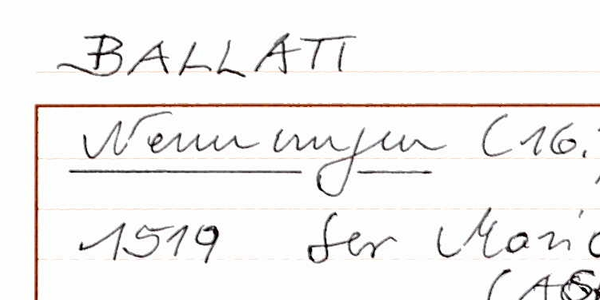 BALLATI
Nennungen (16.
1519 Ser Mario
(AS